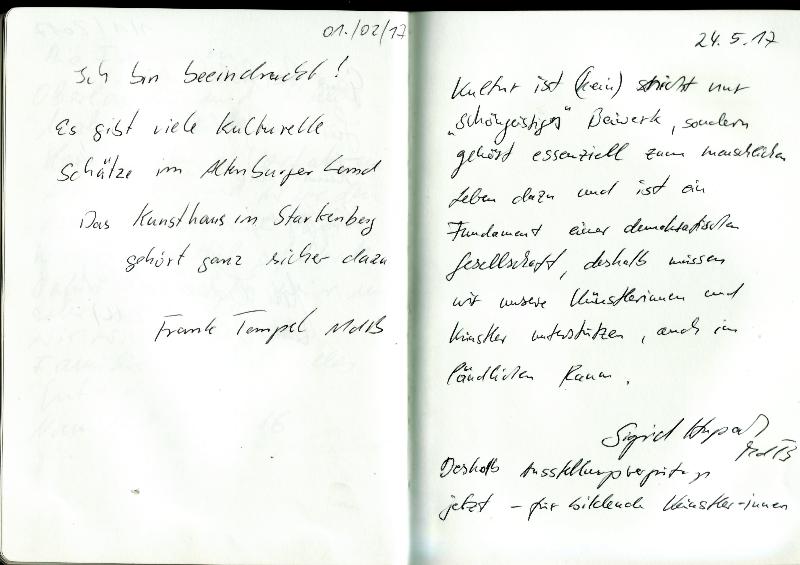 01./02/17
Ich bin beeindruckt!
Es gibt viele kulturelle
Schätze im Altenburger Land
Das Kunsthaus in Starkenberg
gehört ganz sicher dazu
Frank Tempel MdB
24.5.17
Kultur ist (kein) nicht nur
„schöngeistiges" Beiwerk, sondern
gehört essenziell zum menschlichen
Leben dazu und ist ein
Fundament einer demokratischen
Gesellschaft, deshalb müssen
wir unsere Künstlerinnen und
Künstler unterstützen, auch im
ländlichen Raum.
Sigrid Hupach
MdB
Deshalb Ausstellungsvergütung
jetzt – für bildende Künstler-innen